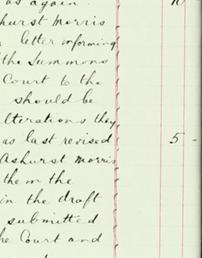 as again. 10
hurst Morris
letter informing
the Summons
Court to the
should be
alterations they
as last revised 5 -
Ashurst Morris
them the
in the draft
submitted
he Court and